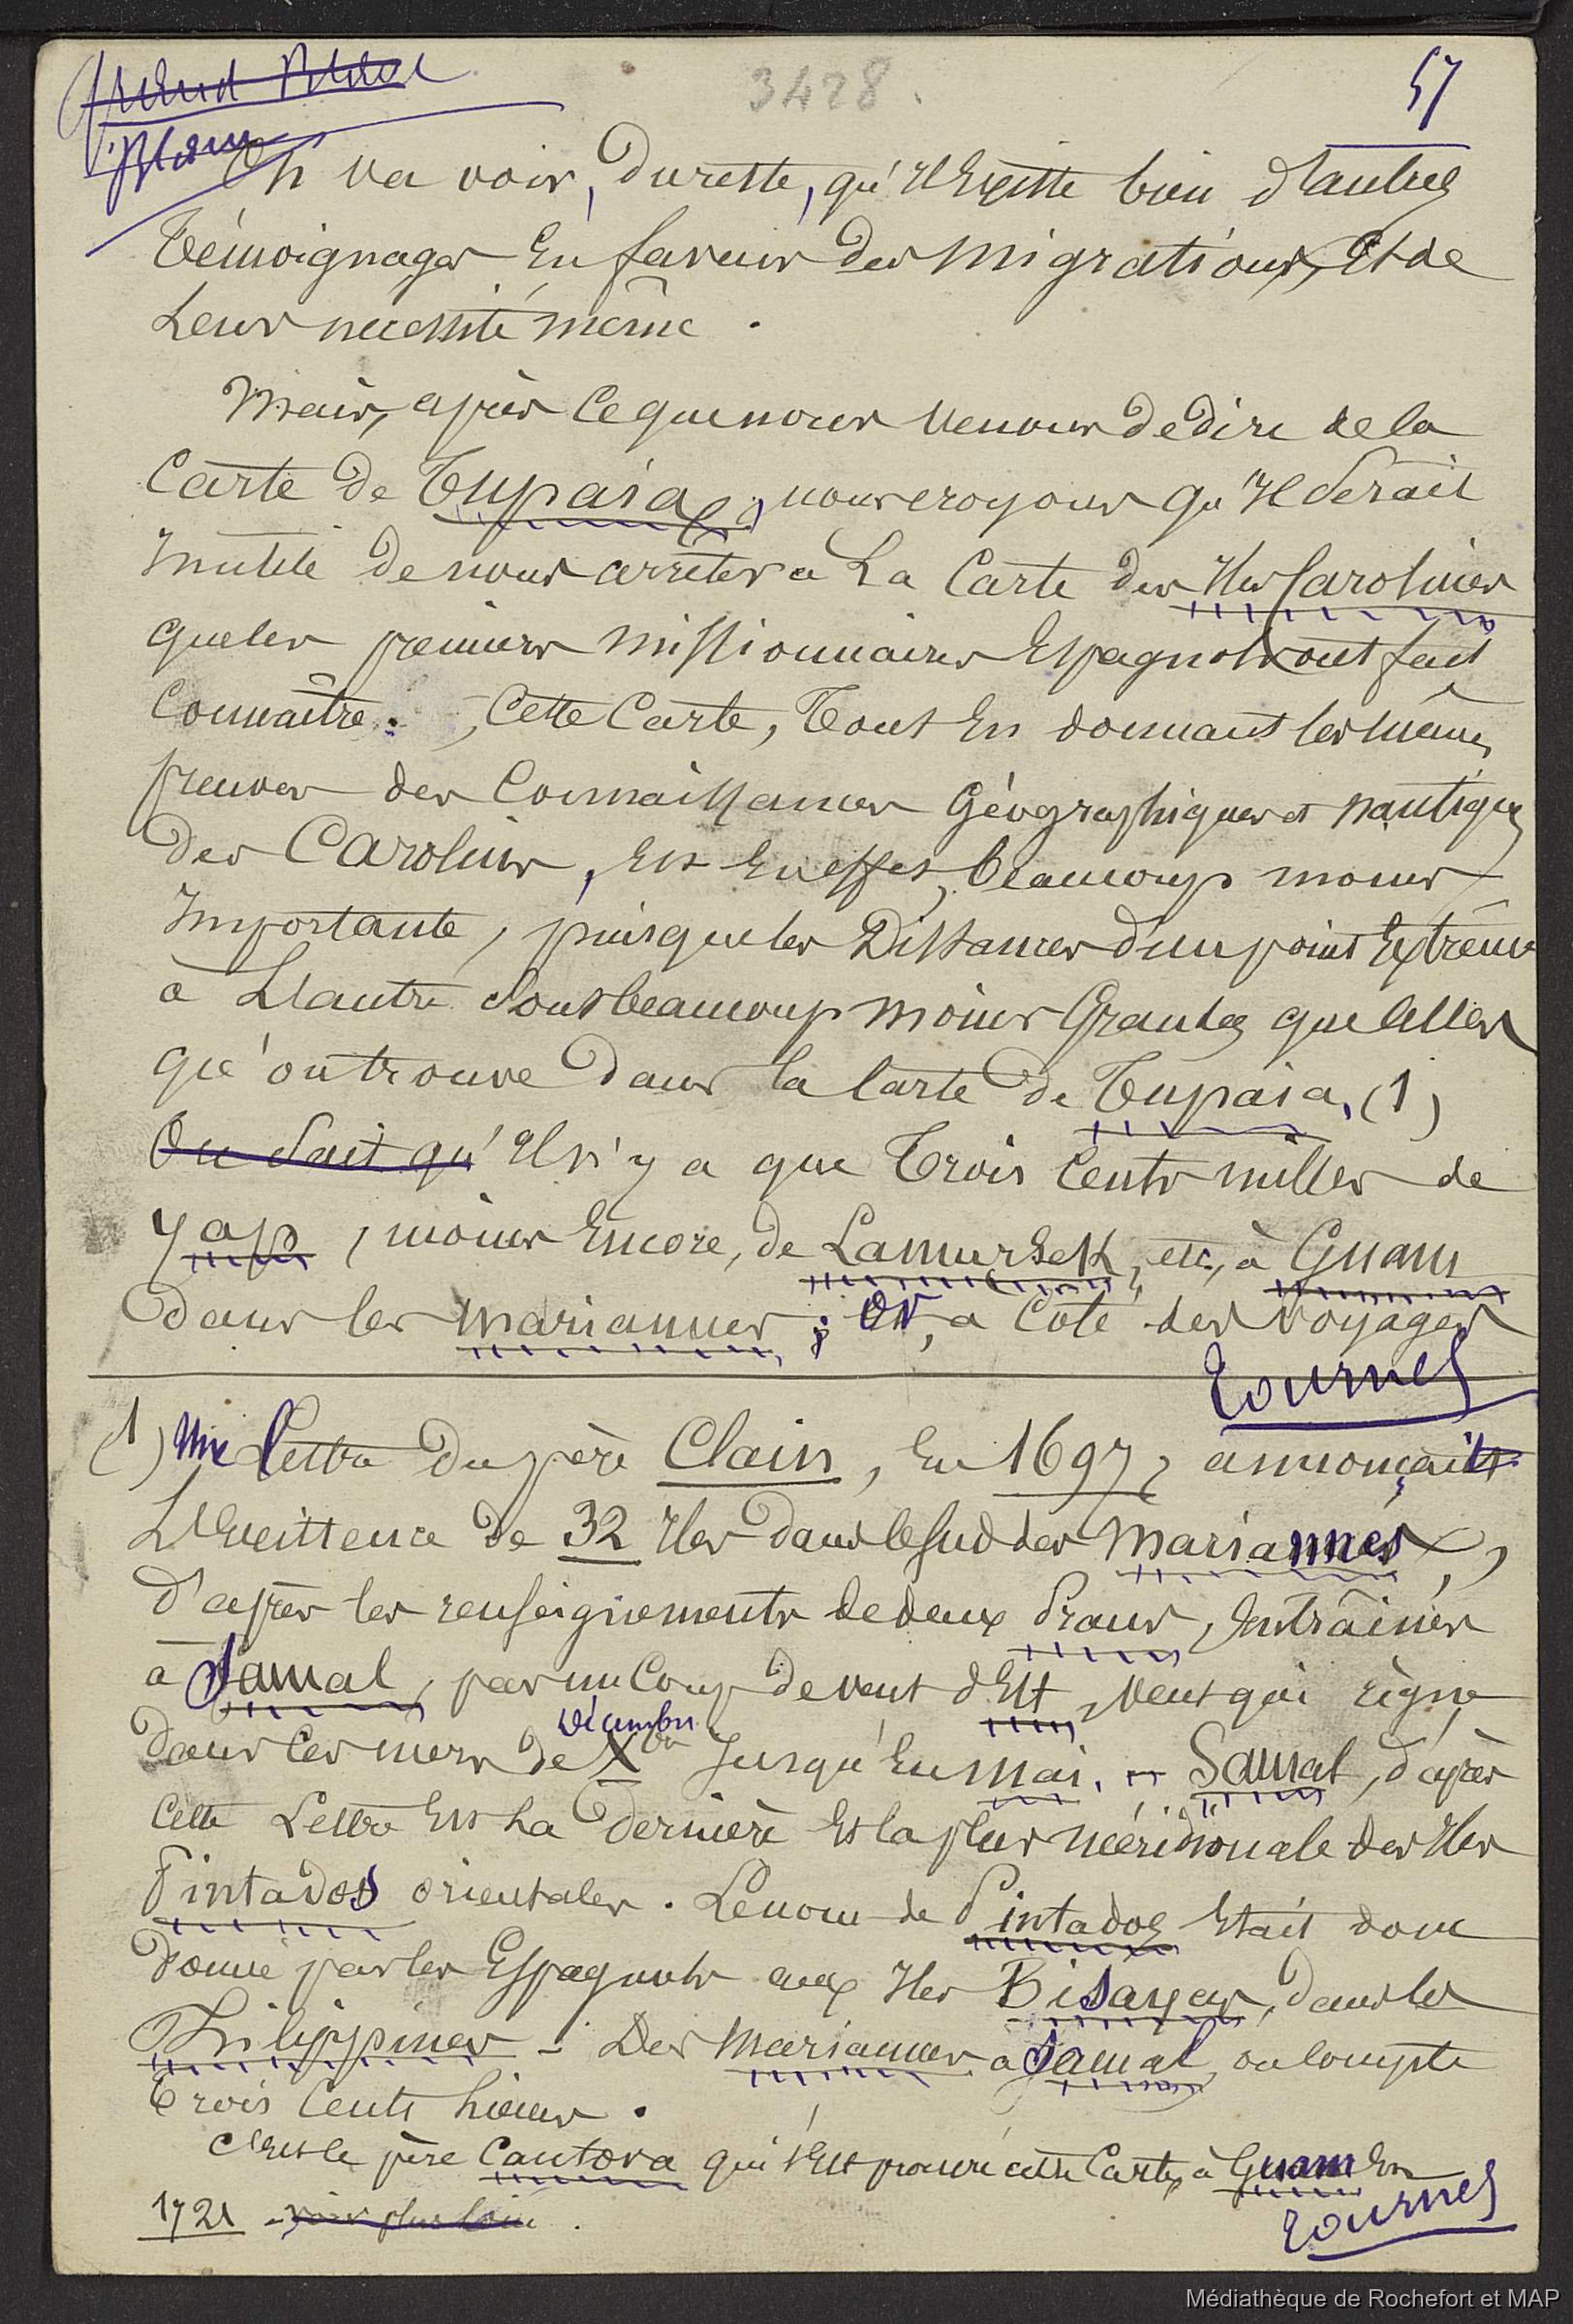 3428.
57
On va voir, du reste, qu'il existe bien d'autres
témoignages en faveur des migrations, et de
leur necessité même.
Mais, après ce que nous venons de dire de la
Carte de Tupaia, nous croyons qu'il serait
inutile de nous arrêter a la Carte des îles Carolines
que les premiers missionnaires Espagnols ont fait
Connaître. Cette Carte, tout en donnant les mêmes
preuves des Connaissances Géographiques et nautiques
des Carolins, est en effet, beaucoup moins
importante, puisque les Distances d'un point Extrême
à l'autre sont beaucoup moins Grandes que celles
qu'on trouve dans la Carte de Tupaia, (1)
On sait qu'il n'y a que trois cents milles de
Yap, moins encore, de Lamursek, etc, à Guam
dans les mariannes; or, a Coté des voyages
tournez
(1) Une Lettre du père Clain, en 1697, annonçait
l'existence de 32 îles dans le sud des Mariannes,
d'après les renseignements de deux Praus, entraînés
à Samal, par un coup de vent d'Est, vent qui règne
dans ces mers de Xbre décembre jusqu'en mai. - Samal, d'après
cette Lettre est la dernière et la plus méridionale des îles
Pintados orientales. Le nom de Pintados était donc
donné par les Espagnols aux îles Bisayas, dans les
Philippines - Des Mariannes a Samal, on compte
trois cents lieues.
C'est le père Cantova qui s'est procuré cette Carte, à Guam en
1721 - voir plus loin.
tournez
Médiathèque de Rochefort et MAP